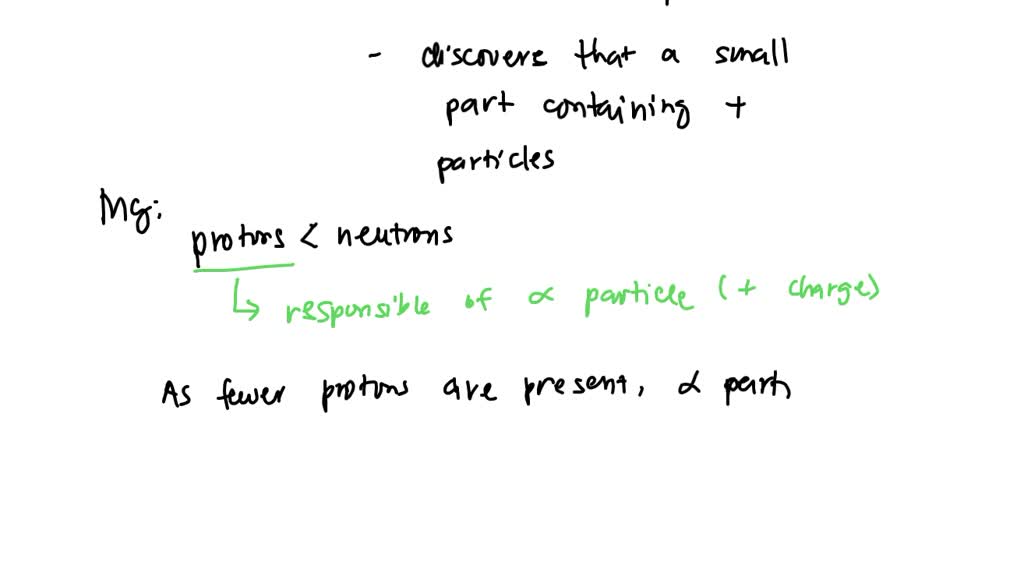 - discovers that a small
part containing +
particles
Mg:
protons < neutrons
↳ responsible of α particle (+ charge)
As fewer protons are present, α parti